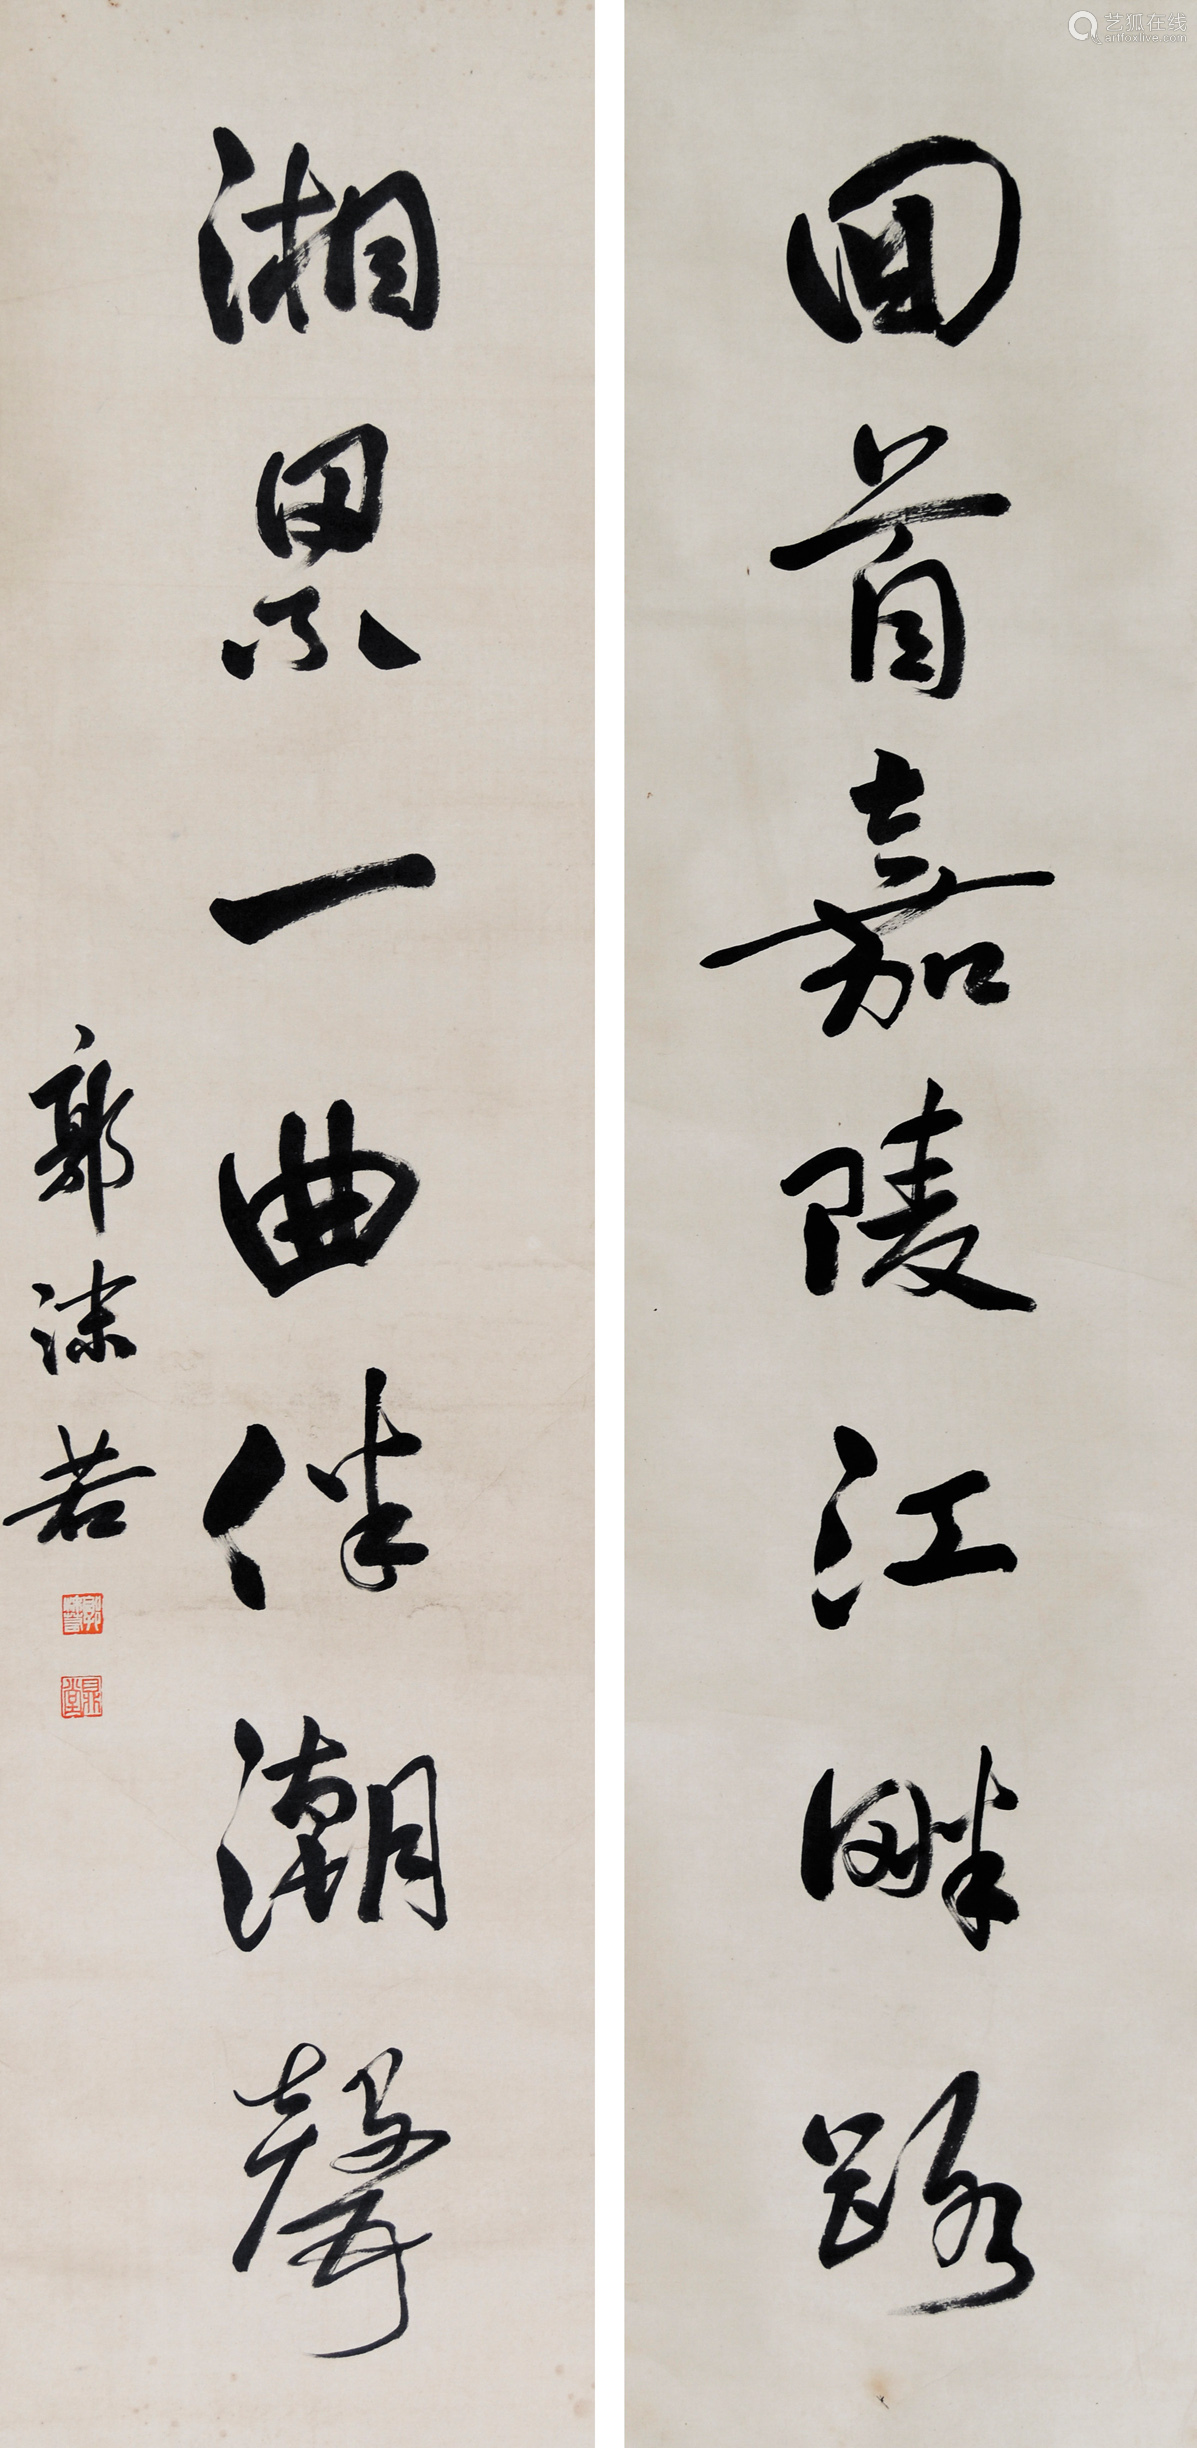 回首嘉陵江畔路
湘累一曲伴潮聲
郭沫若
鼎堂
艺狐在线
artfoxlive.com